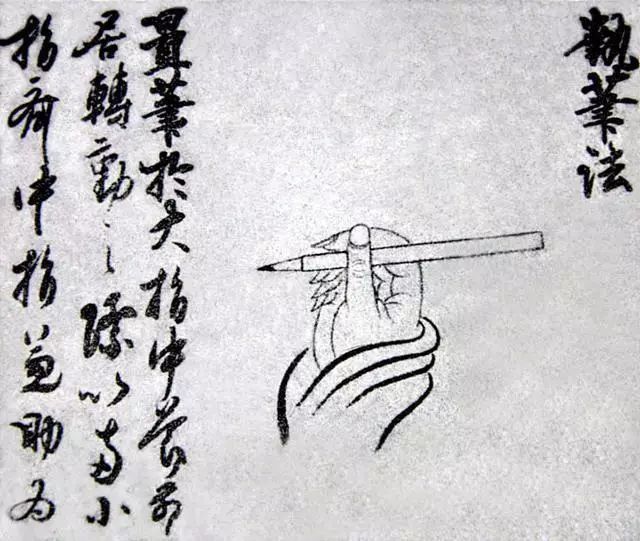 執筆法
置筆於大指中節前
居轉動之際以頭小
指齊中指兼助為